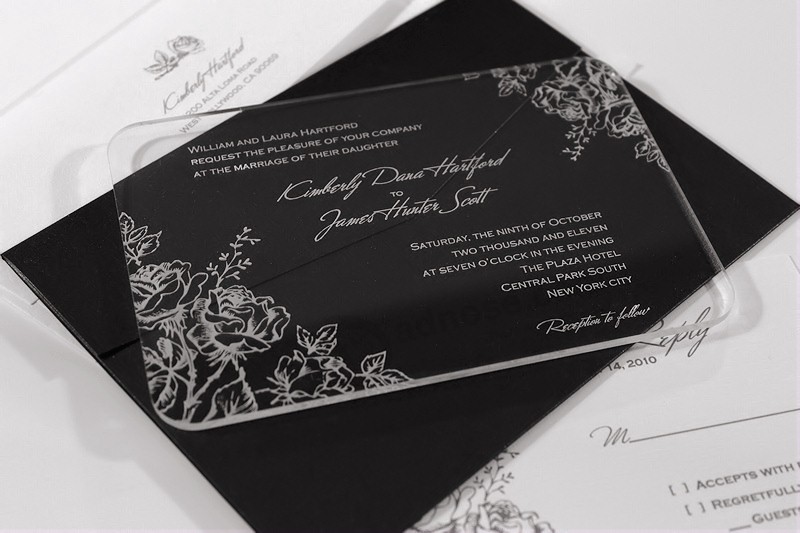 Kimberly Hartford
200 ALTA LOMA ROAD
WEST HOLLYWOOD, CA 90069
WILLIAM AND LAURA HARTFORD
REQUEST THE PLEASURE OF YOUR COMPANY
AT THE MARRIAGE OF THEIR DAUGHTER
Kimberly Dana Hartford
TO
James Hunter Scott
SATURDAY, THE NINTH OF OCTOBER
TWO THOUSAND AND ELEVEN
AT SEVEN O'CLOCK IN THE EVENING
THE PLAZA HOTEL
CENTRAL PARK SOUTH
NEW YORK CITY
Reception to follow
Reply
14, 2010
M
[ ] ACCEPTS WITH
[ ] REGRETFULLY
GUESTS